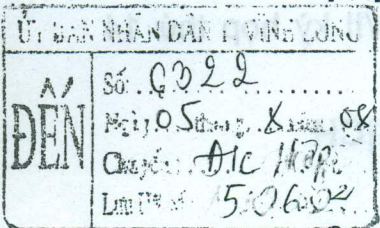 ỦY BAN NHÂN DÂN T. VĨNH LONG
ĐẾN
Số: 6322
Ngày 05 tháng X năm 08
Chuyển: Đ/c
Lưu HS số 50602